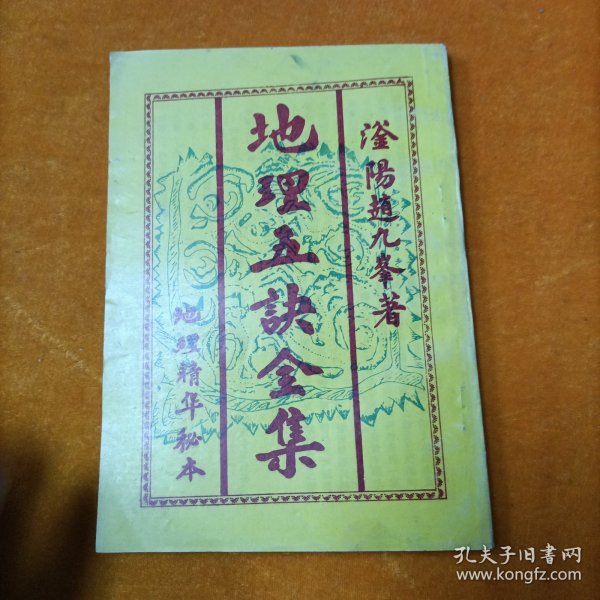 滏陽趙九峯著
地理五訣全集
地理精华秘本
孔夫子旧書网
www.kongfz.com